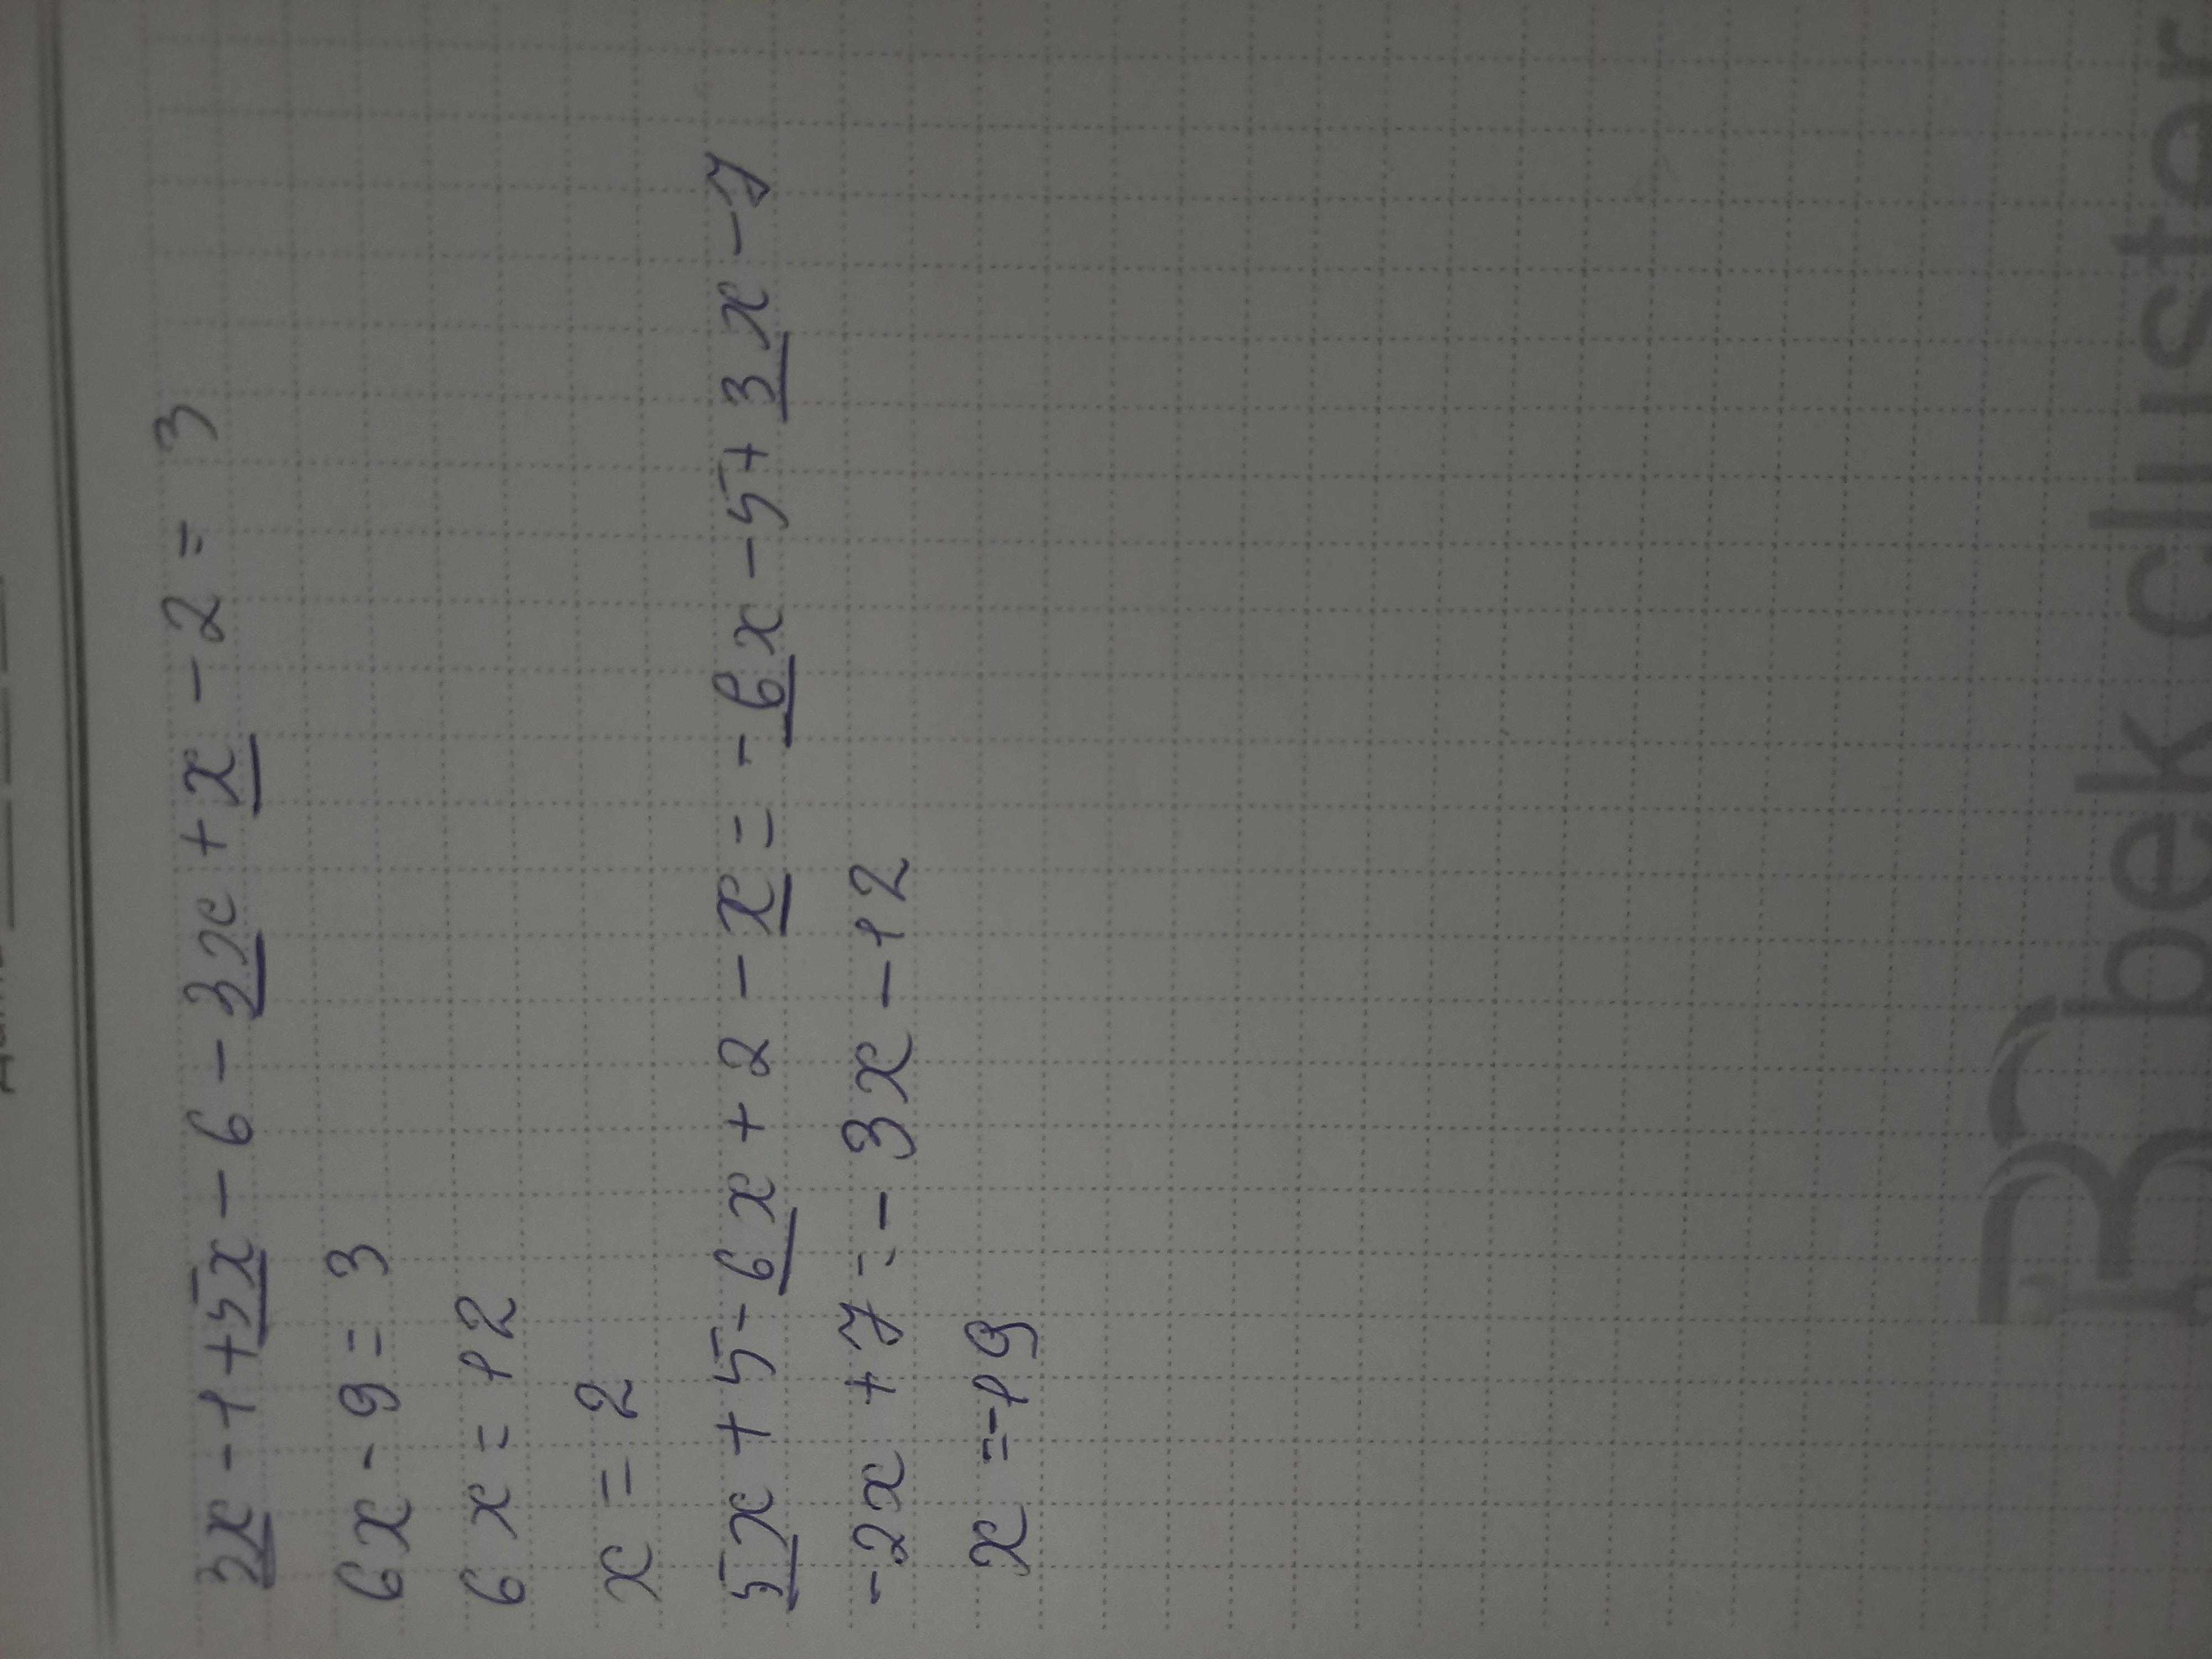 3x - 1 + 5x - 6 - 3x + x - 2 = 3
6x - 9 = 3
6x = 12
x = 2
5x + 5 - 6x + 2 - x = - 6x - 5 + 3x - 7
-2x + 7 = - 3x - 12
x = -19
bek cluster